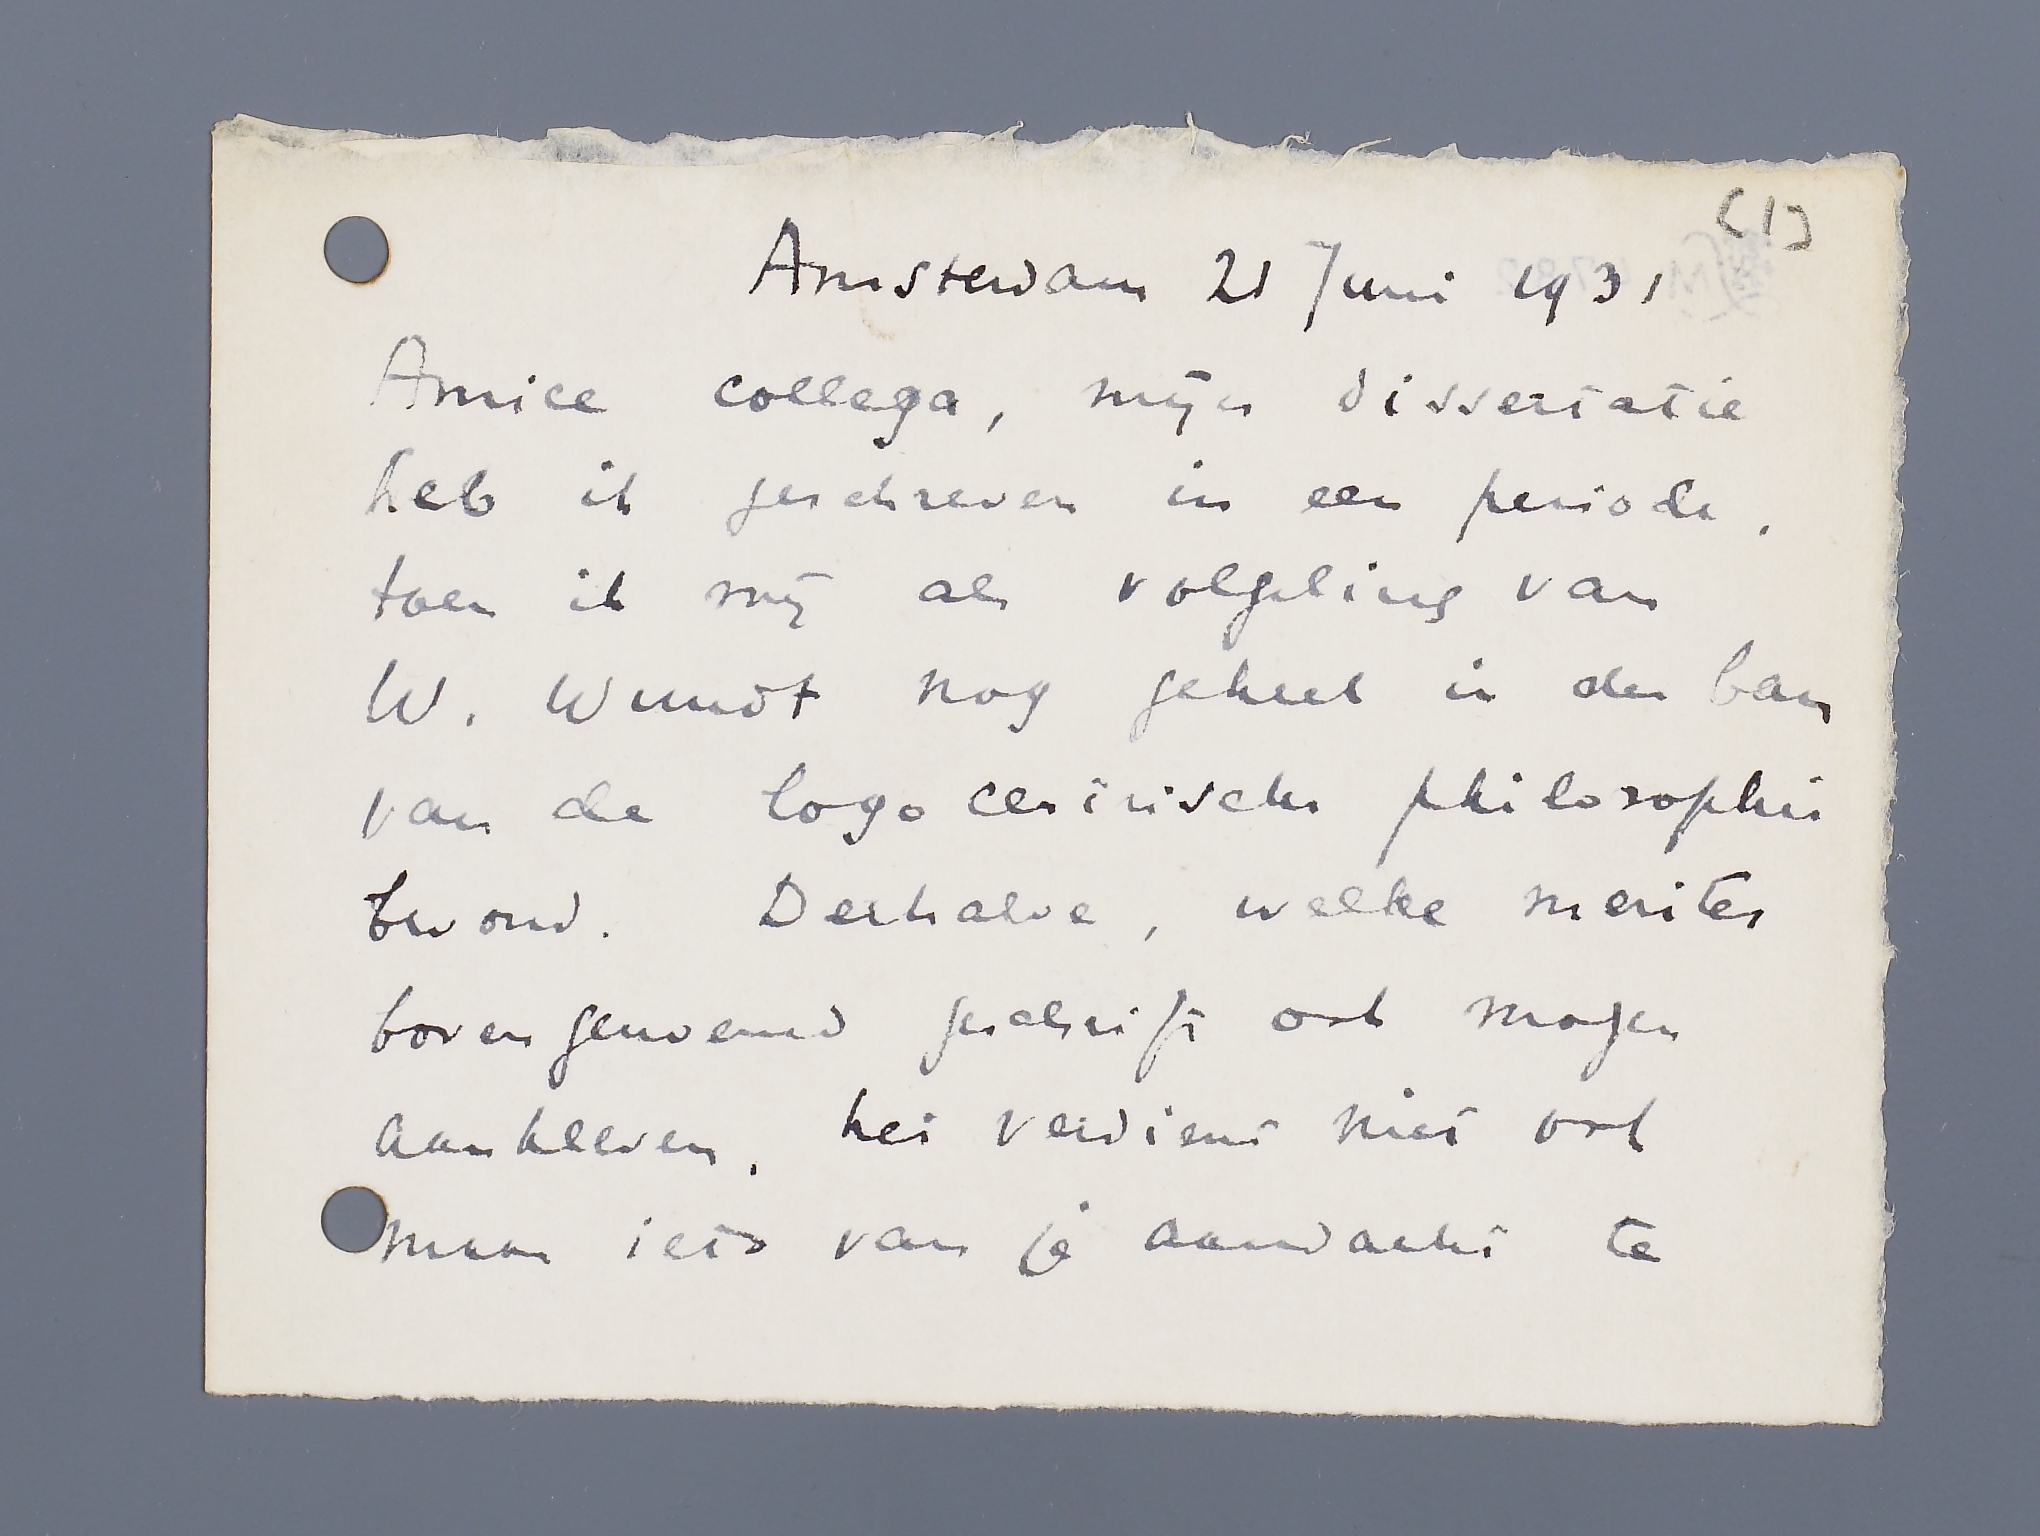 (1)
Amsterdam 21 Juni 1931
Amice collega, mijn dissertatie
heb ik geschreven in een periode,
toen ik mij als volgeling van
W. Wundt nog geheel in den ban
van de logocentrische philosophie
bevond. Derhalve, welke merites
bovengenoemd geschrift ook mogen
aankleeven, het verdient niet ook
maar iets van je aandacht te